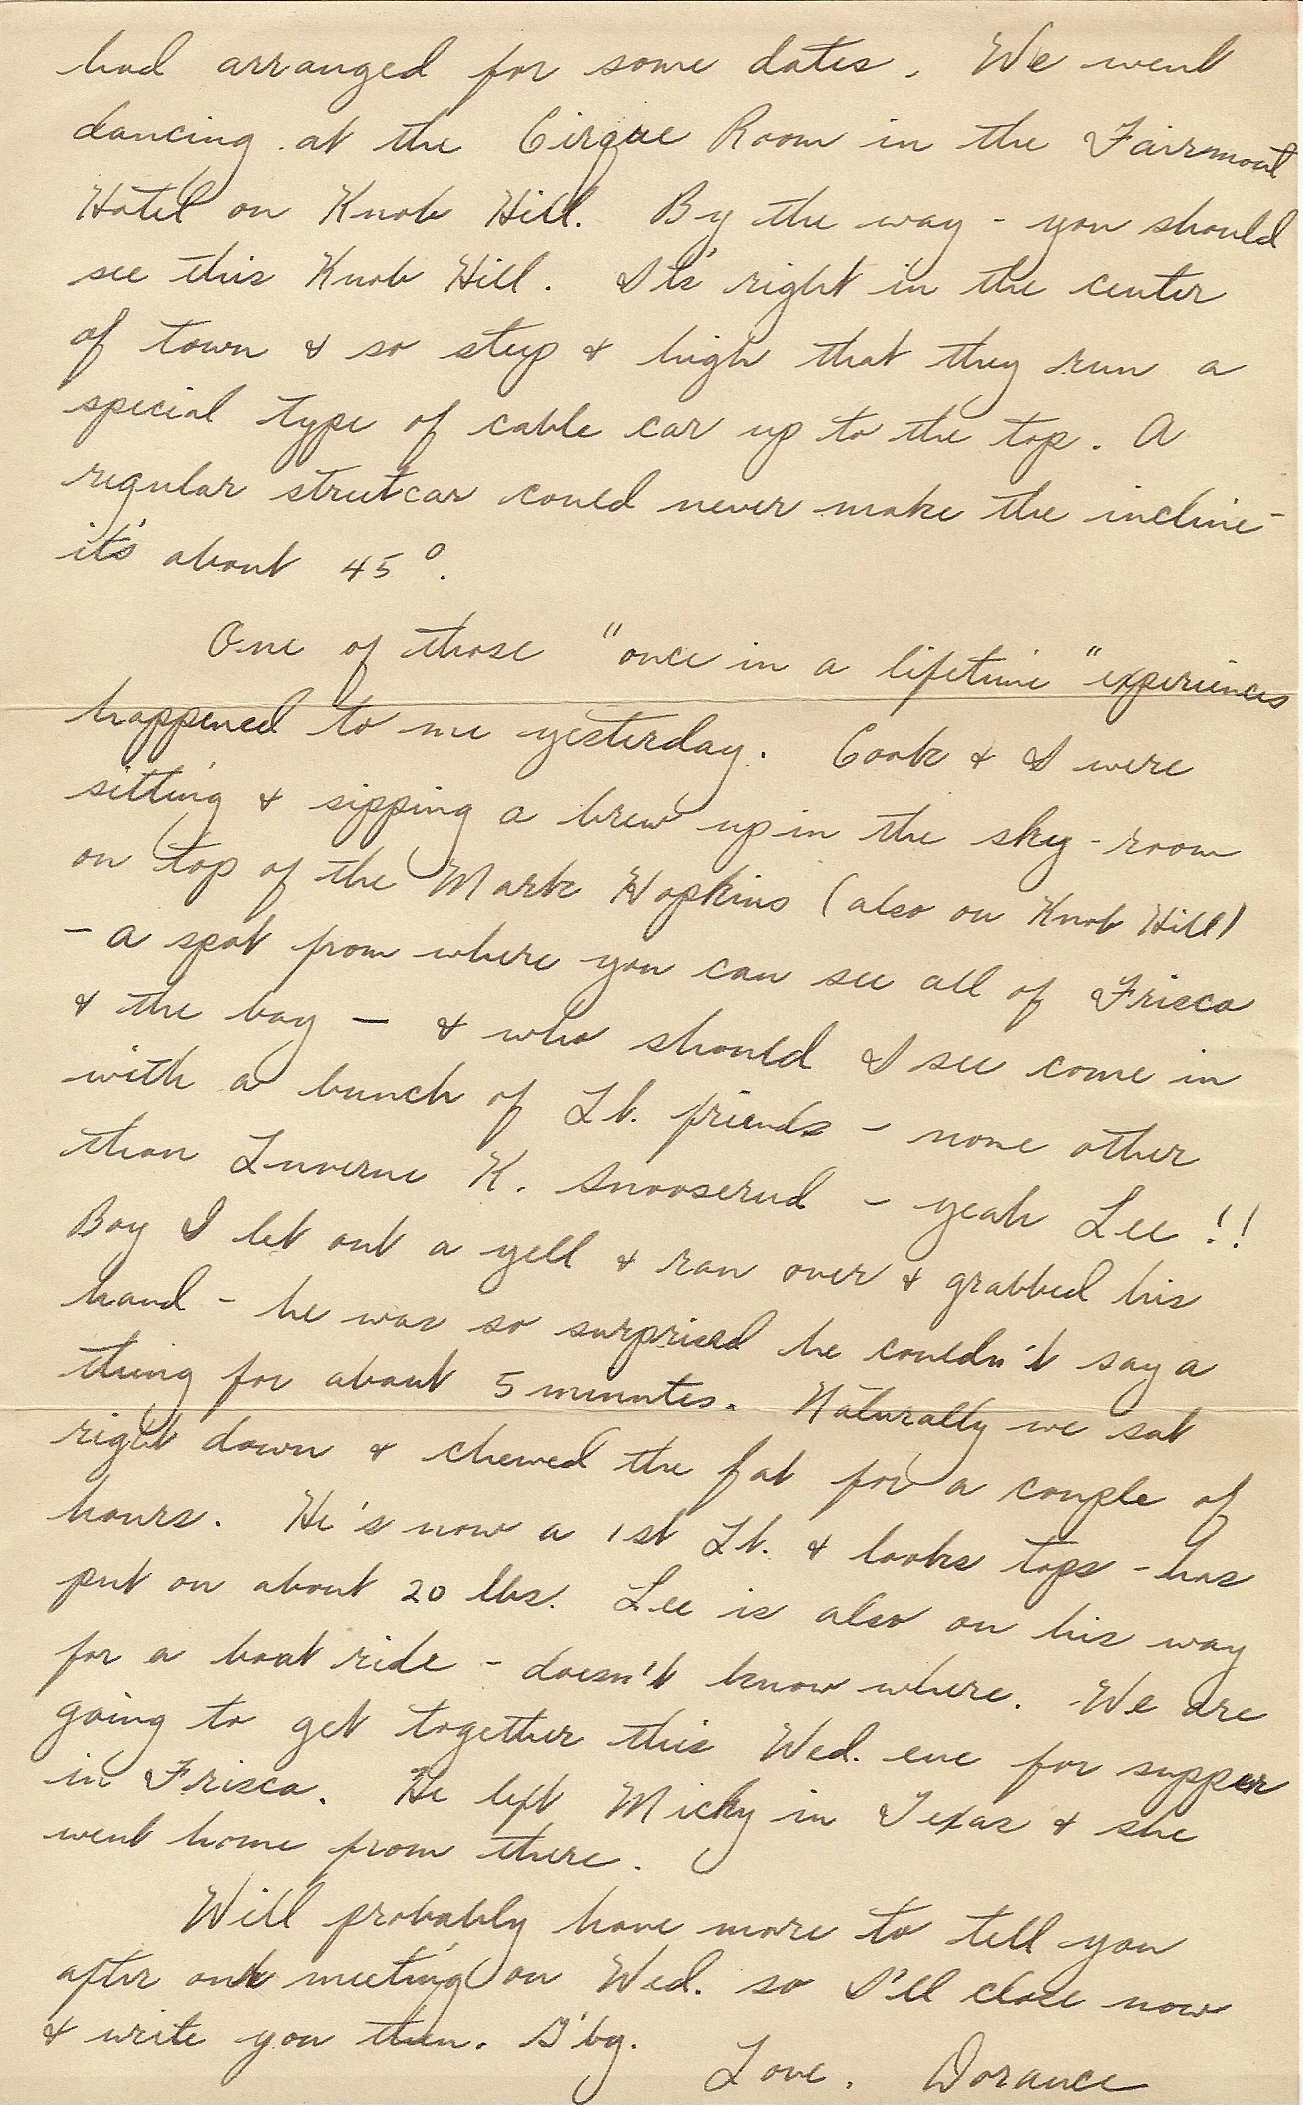 had arranged for some dates. We went
dancing at the Cirque Room in the Fairmont
Hotel on Knob Hill. By the way - you should
see this Knob Hill. It's right in the center
of town & so steep & high that they run a
special type of cable car up to the top. A
regular streetcar could never make the incline -
it's about 45°.
One of those "once in a lifetime" experiences
happened to me yesterday. Cook & I were
sitting & sipping a brew up in the sky-room
on top of the Mark Hopkins (also on Knob Hill)
- a spot from where you can see all of Frisco
& the bay - & who should I see come in
with a bunch of Lt. friends - none other
than Luverne K. Snooserud - yeah Lee!!
Boy I let out a yell & ran over & grabbed his
hand - he was so surprised he couldn't say a
thing for about 5 minutes. Naturally we sat
right down & chewed the fat for a couple of
hours. He's now a 1st Lt. & looks tops - has
put on about 20 lbs. Lee is also on his way
for a boat ride - doesn't know where. We are
going to get together this Wed. eve for supper
in Frisco. He left Micky in Texas & she
went home from there.
Will probably have more to tell you
after our meeting on Wed. so I'll close now
& write you then. G'by.
Love, Dorance